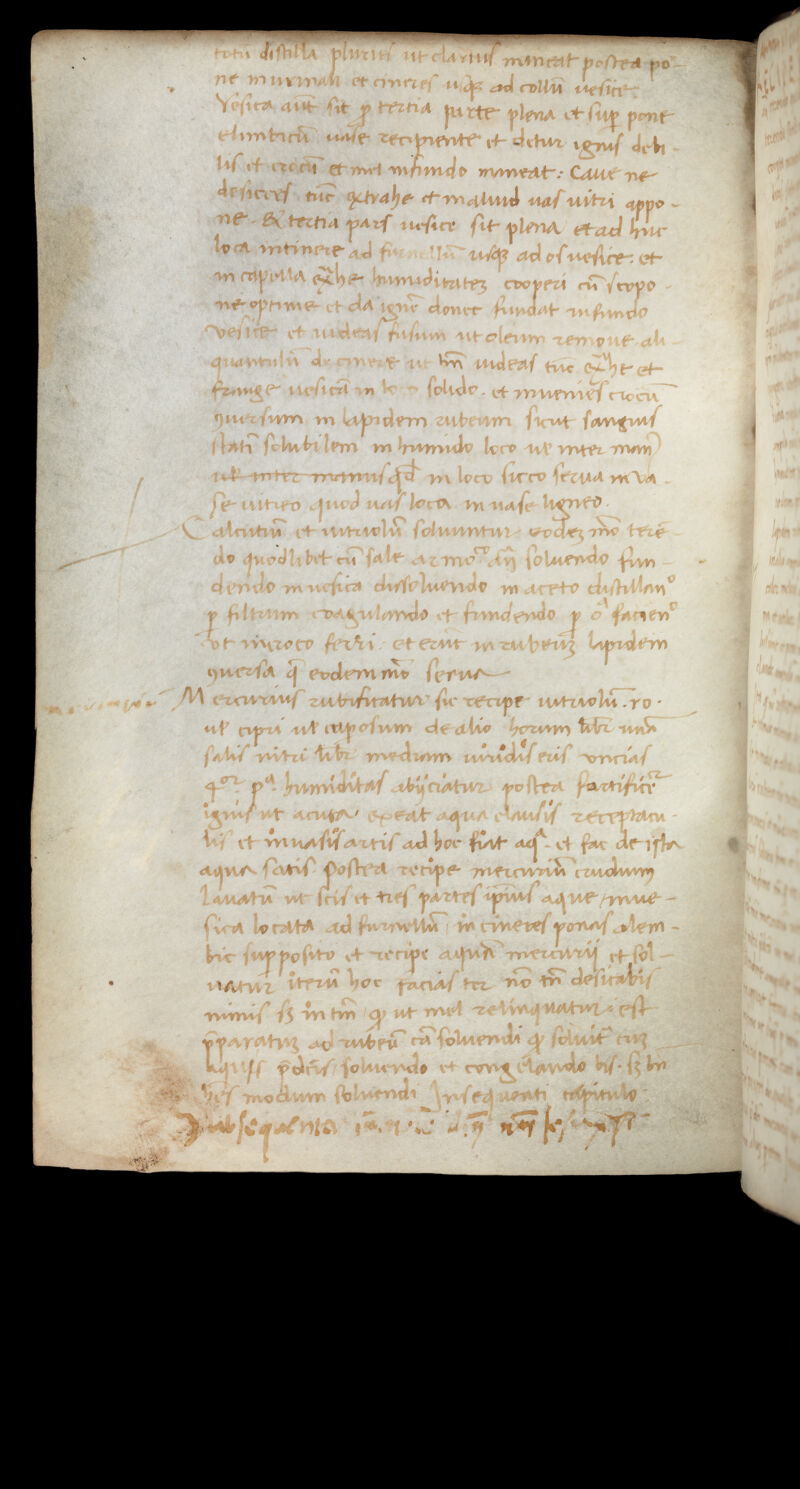 totū distilla pluries ut clarius maneat postea po-
ne in urinali et cineres usq; ad collū uesice
Vesica aūt sit ꝑ tertia parte plena et suꝑ pone
elimbicū uase recipiente et detur ignis debi-
lis et crocū et mel infundo maneat: Caue ne
desicces tūc extrahe et maluid uas uitri appo-
ne. Et tertia pars uesice sit plena et ad huc
loca in cinere ad furnellū usq; ad os uesice: et
in capella ext̄he humiditatēz cooperi cū scopo
ne optime et da ignē donec fundat in fundo
Vesice et uideas fusum ut oleum remoue ali-
quantulū de cinere ut bn̄ uideas tūc ext̄he et
frange uesicā in loco solido. et inuenies crocū
ꝯuersum in lapidem rubeum sicut sanguis
statī solubilem in humido loco ul' inter man⁹
ul' inter manus qd̄ in loco sicco serua in ua
se uitreo quod uas loca in uase ligneo.
Calcutiū et uitriolū soluuntur eodez mō terē
do quodlibet cū sale armo soluendo fun-
dendo in uesica dissoluendo in aceto distillanᵒ
ꝑ filtrum coagulando et fundendo ꝑ oīa facienᵒ
ut in croco ferri. et erūt in rubeūz lapidem
ꝯuersa q̄ eodem mō serua
Mercurius rubificatur sic recipe uitriolū. ro.
ul' cipri ul' cuposum de alio horum libr̄ unā
salis nitri libr̄ mediam uiridis eris uncias
qᵒʳ. pᵃ. humiditas abijciatur postea fortificēr
ignis ut acuta exeat aqua clausis receptacu-
lis et in uasis artis ad hoc fiat aq̄. et fac de ista
aqua satis postea recipe mercuriū crudum
lauatū ut scis et tres partes ipsius aque in ue-
sica locata ad furnellū in cineres ponas alem-
bic supposito et recipe aquā mercurij et sol-
uatur iterū hoc facias ter nō tn̄ desicabis
nimis sz in tm̄ qͥ ut mel relinquatur: est
p̄paratuz ad rubeū cā soluendi
aquis p̄dc̄is soluendo et congelando bis. sz bn̄
hēs modum soluendi Insequenti capitulo